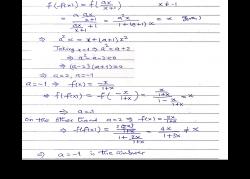 f(f(x)) = f(ax/(x+1))    x ≠ -1
= (a · ax/(x+1)) / (ax/(x+1) + 1) = a²x / (1+(a+1)x) = x
⇒ a²x = x + (a+1)x²
Taking x=1 ⇒ a² = a+2
⇒ a²-a-2=0
⇒ (a-2)(a+1)=0
⇒ a=2, a=-1
a=-1 ⇒ f(x) = -x/(1+x)
⇒ f(f(x)) = f(-x/(1+x)) = (x/(1+x)) / (1 - x/(1+x)) = x
⇒ a=-1
On the other hand a=2 ⇒ f(x) = 2x/(1+x)
⇒ f(f(x)) = / (1 + 2x/(1+x)) = 4x/(1+3x) ≠ x
⇒ a=-1 is the answer